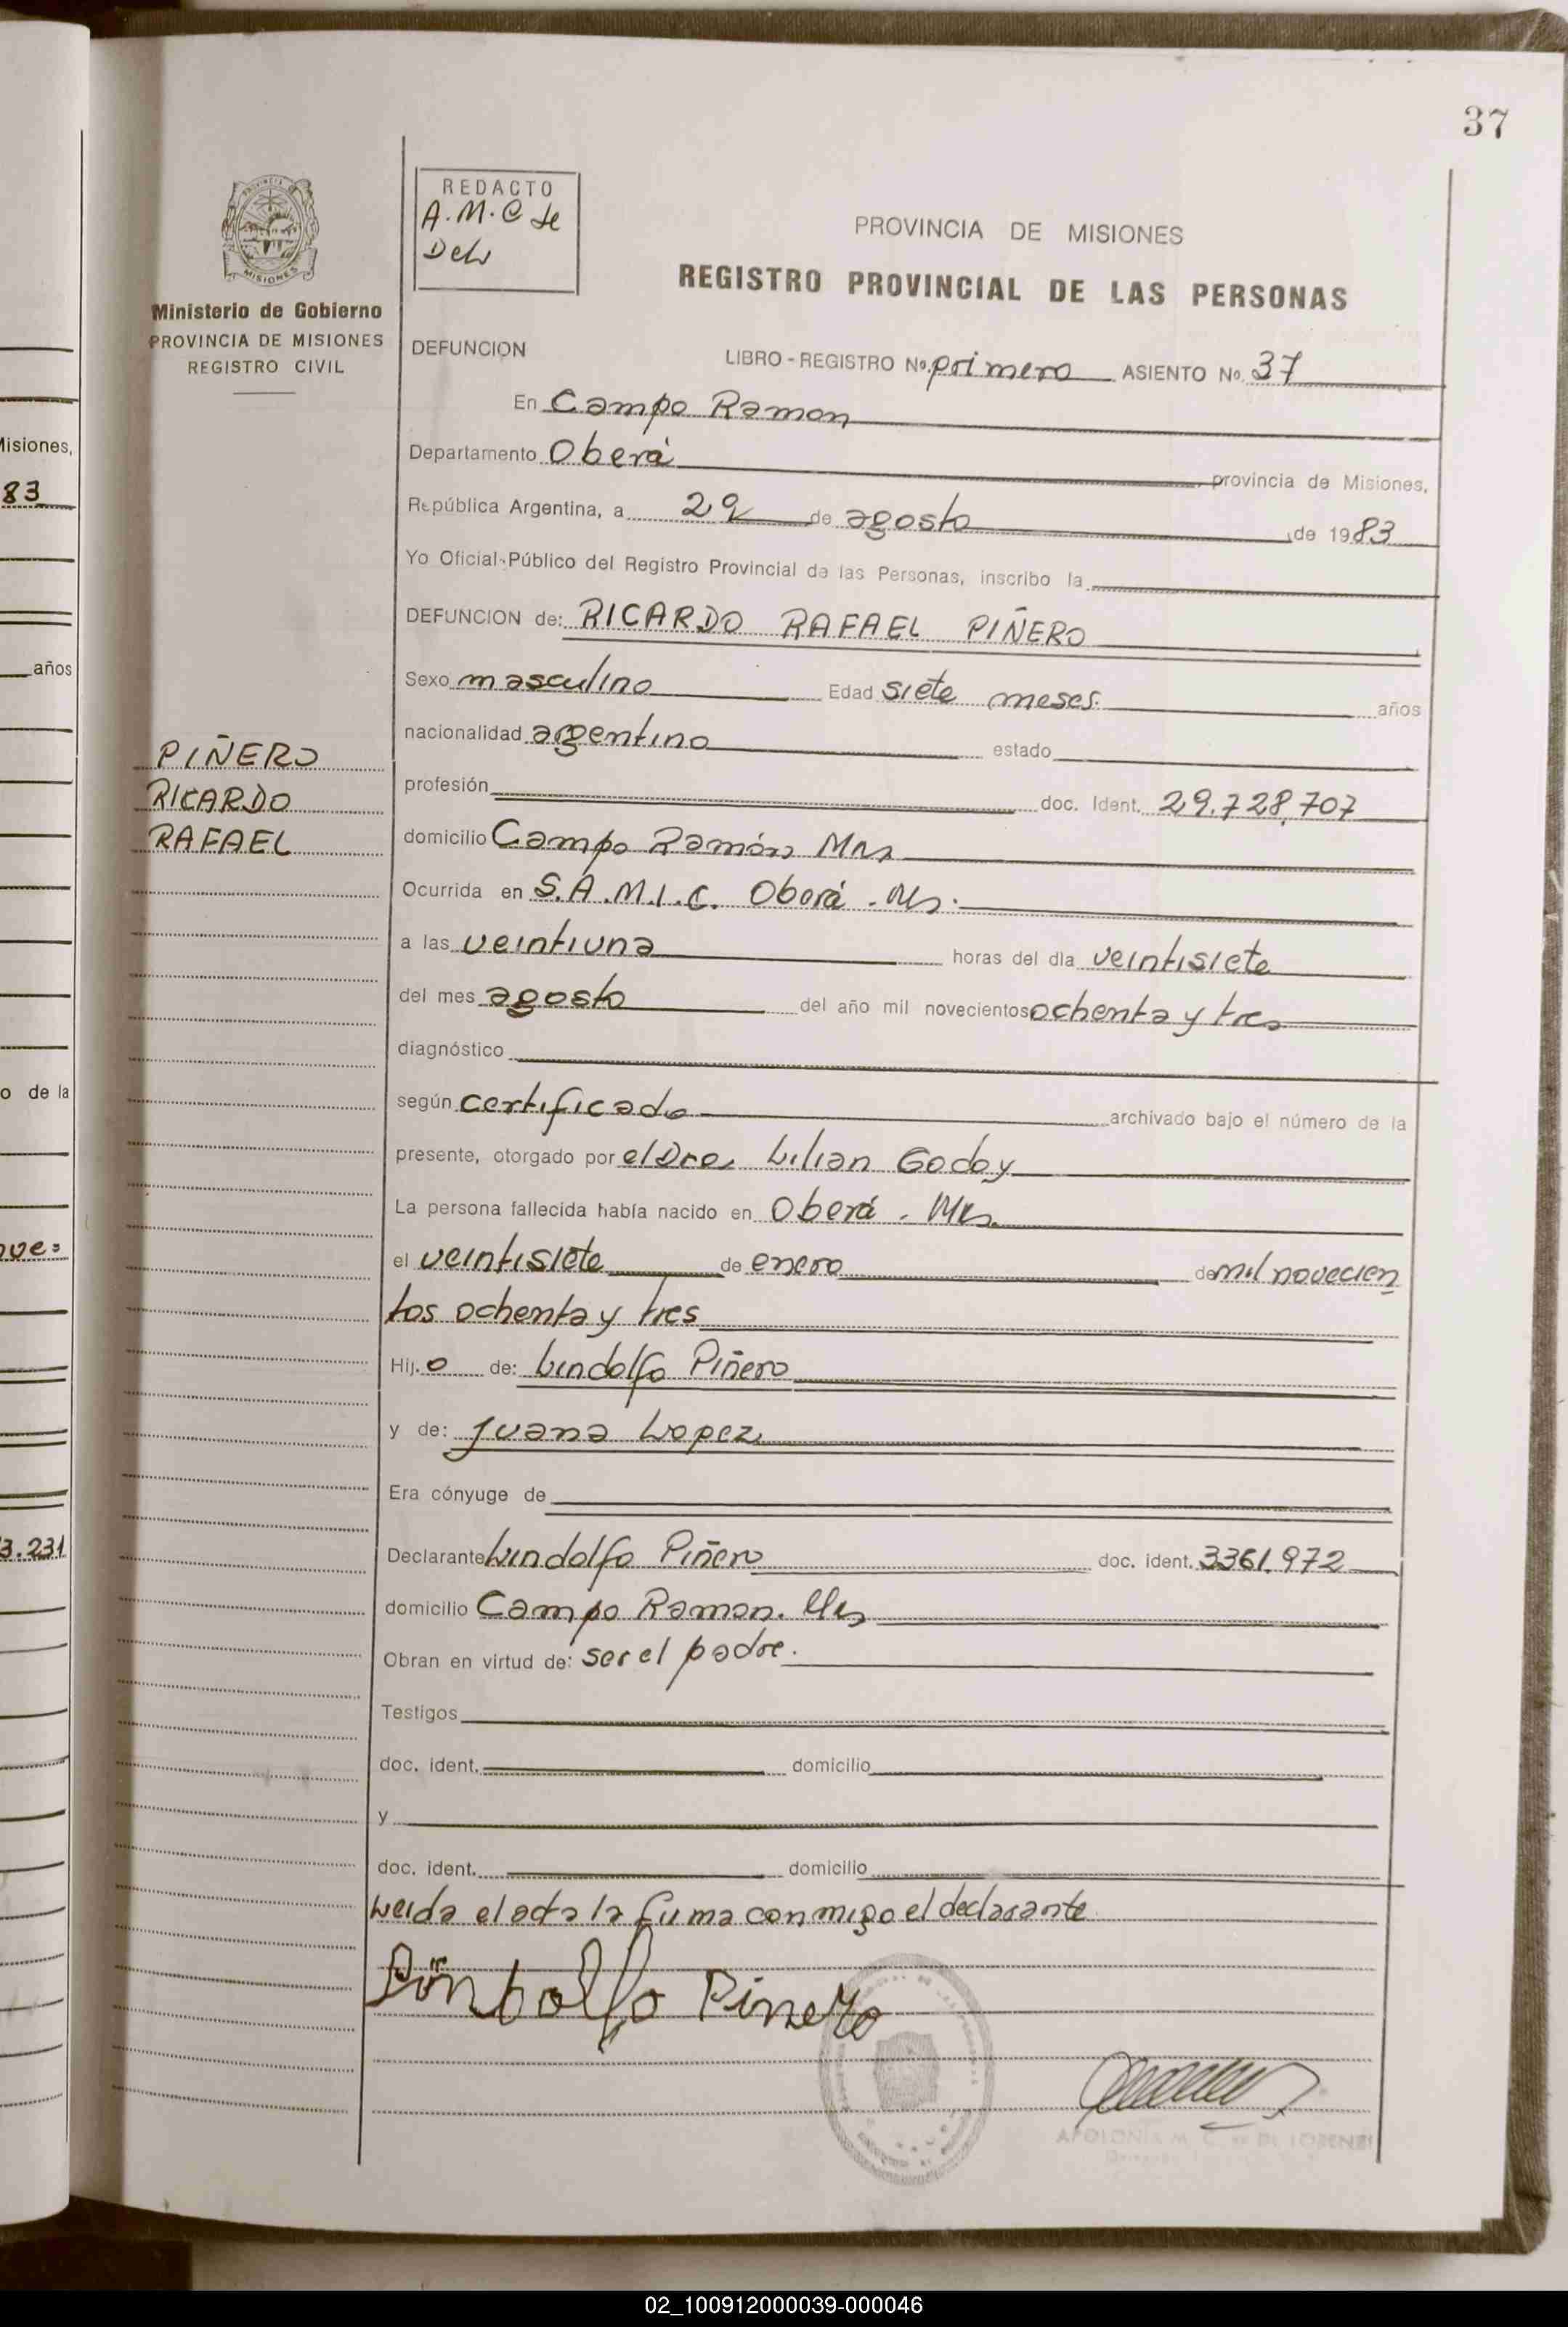 37
isiones,
83
años
o de la
3.231
PROVINCIA DE
MISIONES
Ministerio de Gobierno
PROVINCIA DE MISIONES
REGISTRO CIVIL
PIÑERO
RICARDO
RAFAEL
REDACTO
A.M.C de
PROVINCIA DE MISIONES
REGISTRO PROVINCIAL DE LAS PERSONAS
DEFUNCION LIBRO - REGISTRO No. primero ASIENTO No. 37
En Campo Ramon
Departamento Oberá provincia de Misiones,
República Argentina, a 29 de agosto de 1983
Yo Oficial Público del Registro Provincial de las Personas, inscribo la
DEFUNCION de: RICARDO RAFAEL PIÑERO
Sexo masculino Edad siete meses. años
nacionalidad argentino estado
profesión doc. Ident. 29.728.707
domicilio Campo Ramón Mns
Ocurrida en S.A.M.I.C. Oberá - Ms.
a las veintiuna horas del día veintisiete
del mes agosto del año mil novecientos ochenta y tres
diagnóstico
según certificado archivado bajo el número de la
presente, otorgado por el Dra. Lilian Godoy
La persona fallecida había nacido en Oberá - Mns.
el veintisiete de enero de mil novecien
tos ochenta y tres
Hij.o de: Lindolfo Piñero
y de: Juana Lopez
Era cónyuge de
Declarante Lindolfo Piñero doc. ident. 3361.972
domicilio Campo Ramon. Mns
Obran en virtud de: ser el padre.
Testigos
doc. ident. domicilio
y
doc. ident. domicilio
Leida el acta la firma conmigo el declarante
Lindolfo Pinero
APOLONIA M. C. de DE LORENZI
02_100912000039-000046